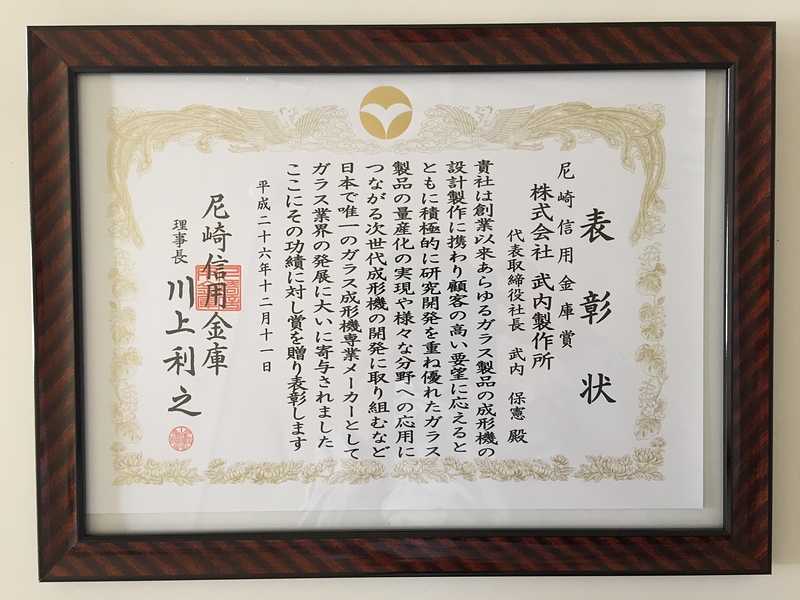 表彰状
尼崎信用金庫賞
株式会社 武内製作所
代表取締役社長 武内 保憲 殿
貴社は創業以来あらゆるガラス製品の成形機の
設計製作に携わり顧客の高い要望に応えると
ともに積極的に研究開発を重ね優れたガラス
製品の量産化の実現や様々な分野への応用に
つながる次世代成形機の開発に取り組むなど
日本で唯一のガラス成形機専業メーカーとして
ガラス業界の発展に大いに寄与されました
ここにその功績に対し賞を贈り表彰します
平成二十六年十二月十一日
尼崎信用金庫
理事長 川上利之